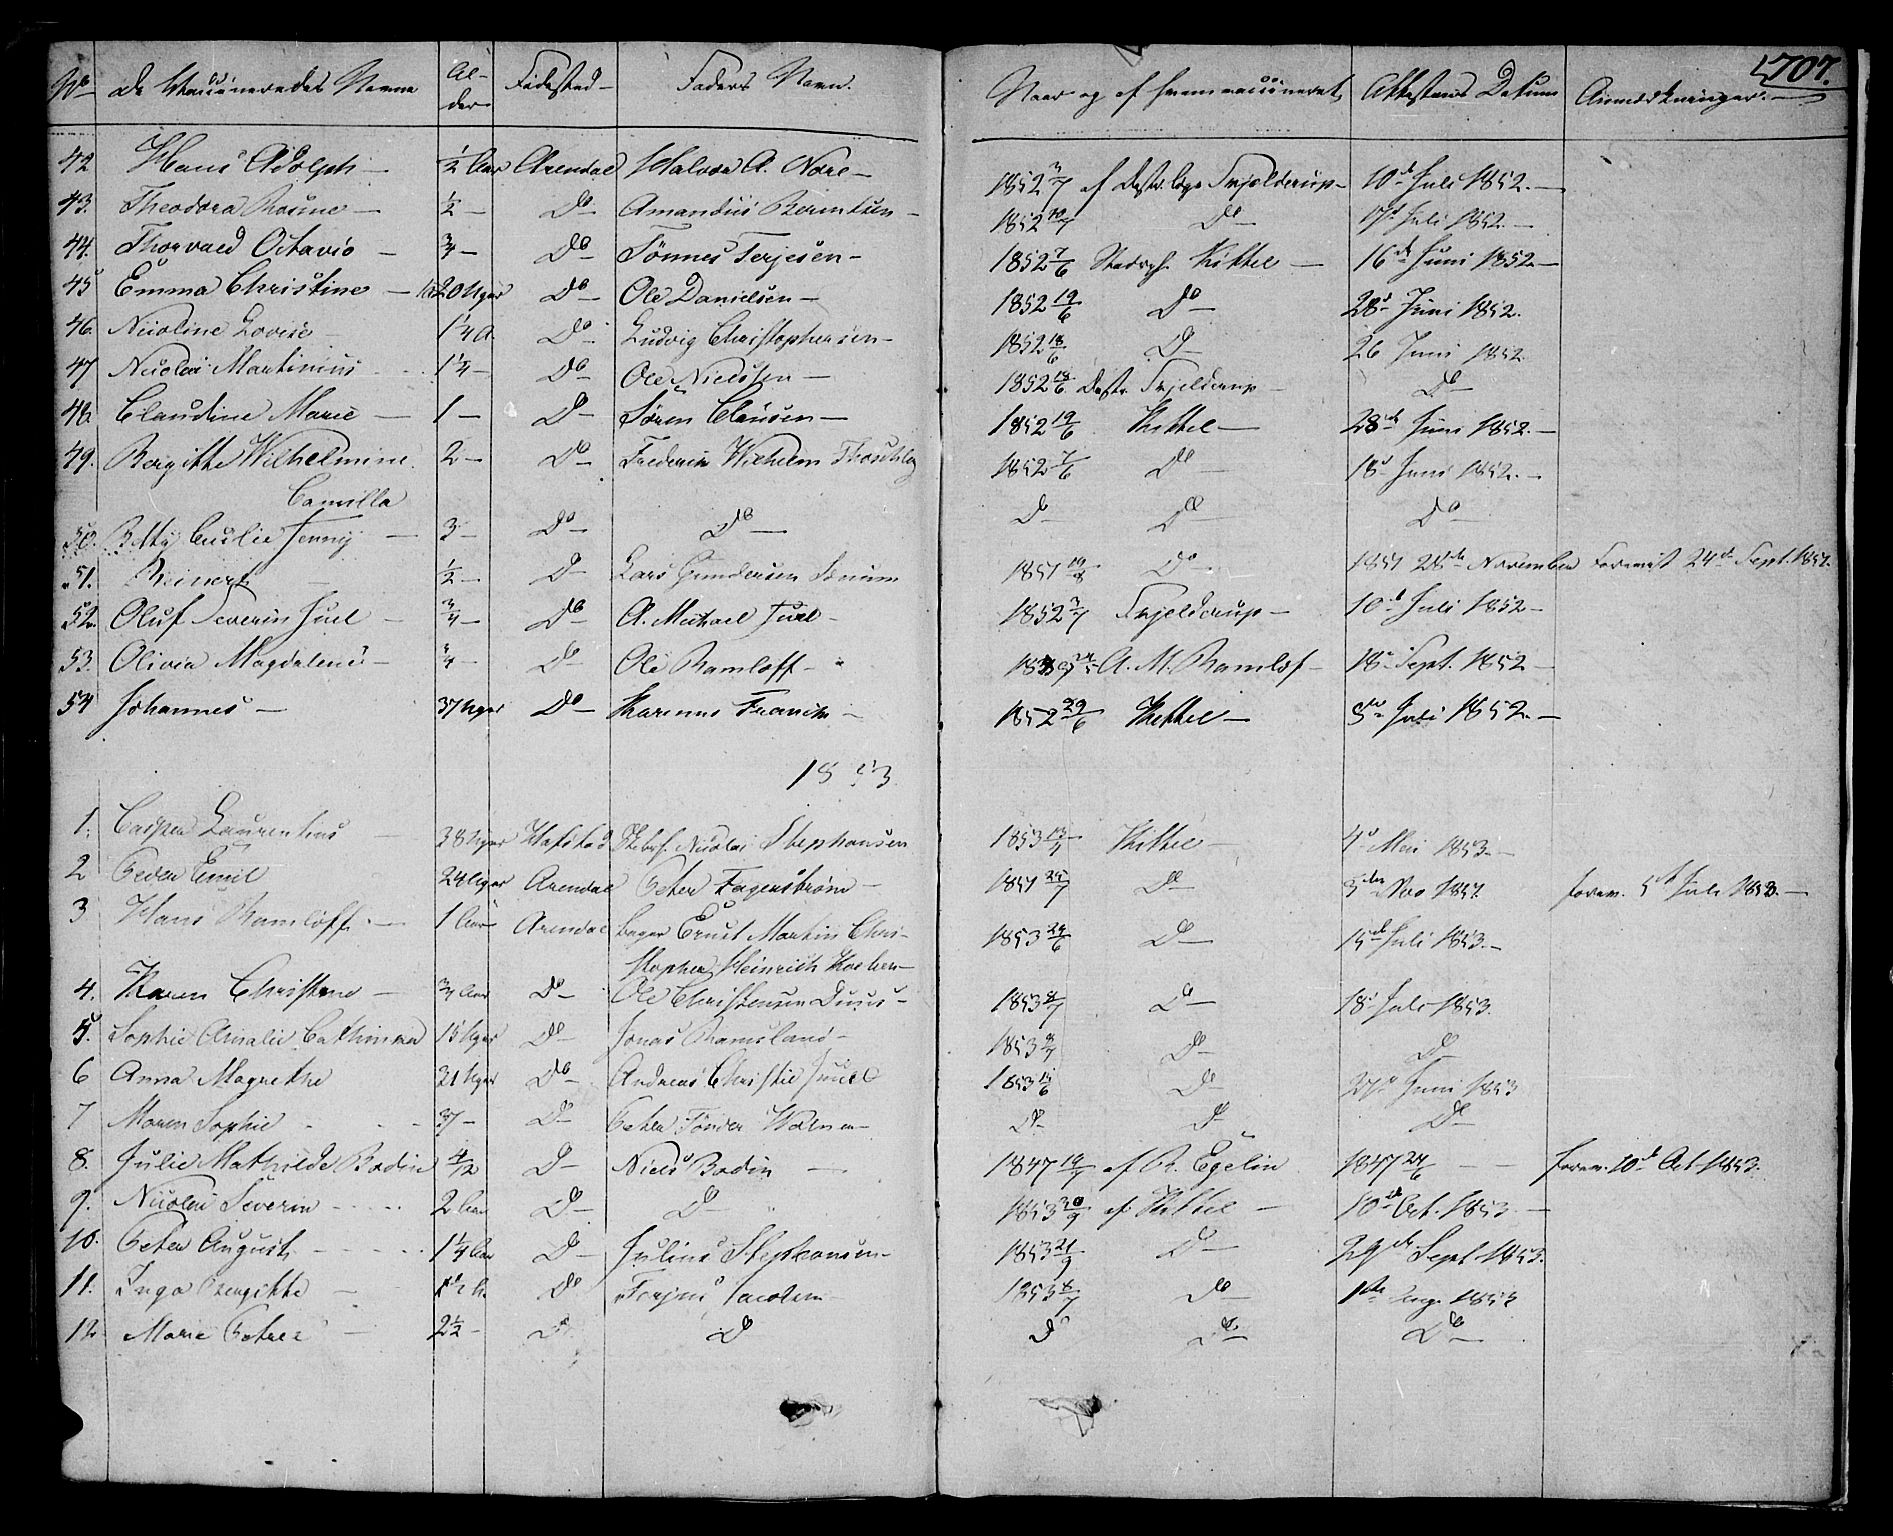 707.
No de Vaccineredes Navne Al-der Fødested Faders Navn. Naar og af hvem vaccineret Attestens Datum Anmærkninger.
42 Hans Adolph — 1/2 Aar Arendal Halvor A. Næs — 1852 3/7 af Distr.læge Fyelderup — 10de Juli 1852. —
43. Theodora Rosine — 1/2 — Do — Amandus Berentsen — 1852 10/7 Do — 17de Juli 1852. —
44. Thorvald Octavio — 3/4 — Do — Tønnes Terjesen — 1852 7/6 Kittel — 16de Juni 1852 —
45 Emma Christine — 20 Uger Do — Ole Danielsen — 1852 19/6 Do — 28de Juni 1852.
46. Nicoline Lovise — 1 1/4 A. Do — Ludvig Christophersen — 1852 18/6 Do — 26 Juni 1852
47 Nicolai Martinius 1 1/4 — Do — Ole Nielssen — 1852 18/6 Distr. Fyelderup — Do —
48. Claudine Marie — 1 — Do — Søren Clausen — 1852 19/6 Kittel — 28de Juni 1852. —
49. Bergitte Wilhelmine 2 — Do — Frederik Wilhelm 1852 7/6 Do — 18de Juni 1852. —
Camilla
50. Betty Cecilie Jenny — 3 — Do — Do — Do — Do — Do —
51. Reinert — 1/2 — Do — Lars Gundersen 1851 19/8 Do — 1851 28de November Forevist 24de Sept. 1852.
52. Oluf Severin Juel — 3/4 — Do — A. Michael Juel — 1852 3/7 Fyelderup — 10de Juli 1852 —
53. Olivia Magdalene — 3/4 — Do — Ole Ramloff — A. M. Ramlof — 18de Sept. 1852 —
54 Johannes — 37 Uger Do — 1852 29/6 Kittel — 5te Juli 1852. —
1853
1. Casper Laurentius — 38 Uger Nicolai Stephansen 1853 13/4 Kittel — 4de Mai 1853 —
2 Peder Emil 24 Uger Arendal Peter Fagerstrøm — 1851 25/7 Do — 5den Nov 1851. forev. 5de Juli 1853. —
3 Hans Ramloff. — 1 Aar Arendal Bager Ernst Martin Chri- 1853 24/6 Do — 15de Juli 1853. —
stopher Heinrich
4. Karen Christine — 3/4 Aar Do — Ole Christensen Duus — 1853 8/7 Do — 18de Juli 1853.
5. Sophie Amalie Cathrine 15 Uger Do — Jonas Ramsland — 1853 8/7 Do — Do
6 Anna Magrethe 21 Uger Do — Andreas Christie Juell 1853 15/6 Do 27de Juni 1853
7 Maren Sophie 37 — Do — Peter Tønder — Do — Do Do —
8. Julie Mathilde Bodin 4/12 Do — Niels Bodin — 1847 19/7 af R. Egelin 1847 24/6 — forev. 10de Oct. 1853.
9. Nicolai Severin 2 Aar Do — Do 1853 30/9 af Kittel — 10de Oct. 1853. —
10. Peter August 1 1/4 Aar Do — Julius Stephansen — 1853 21/9 Do — 29de Sept 1853.
11. Inga Bergitte — Do Terjus Jacobsen — 1853 8/7 Do — 1ste Aug. 1853
12 Marie Petrea — 2 1/2 — Do Do Do Do — Do —